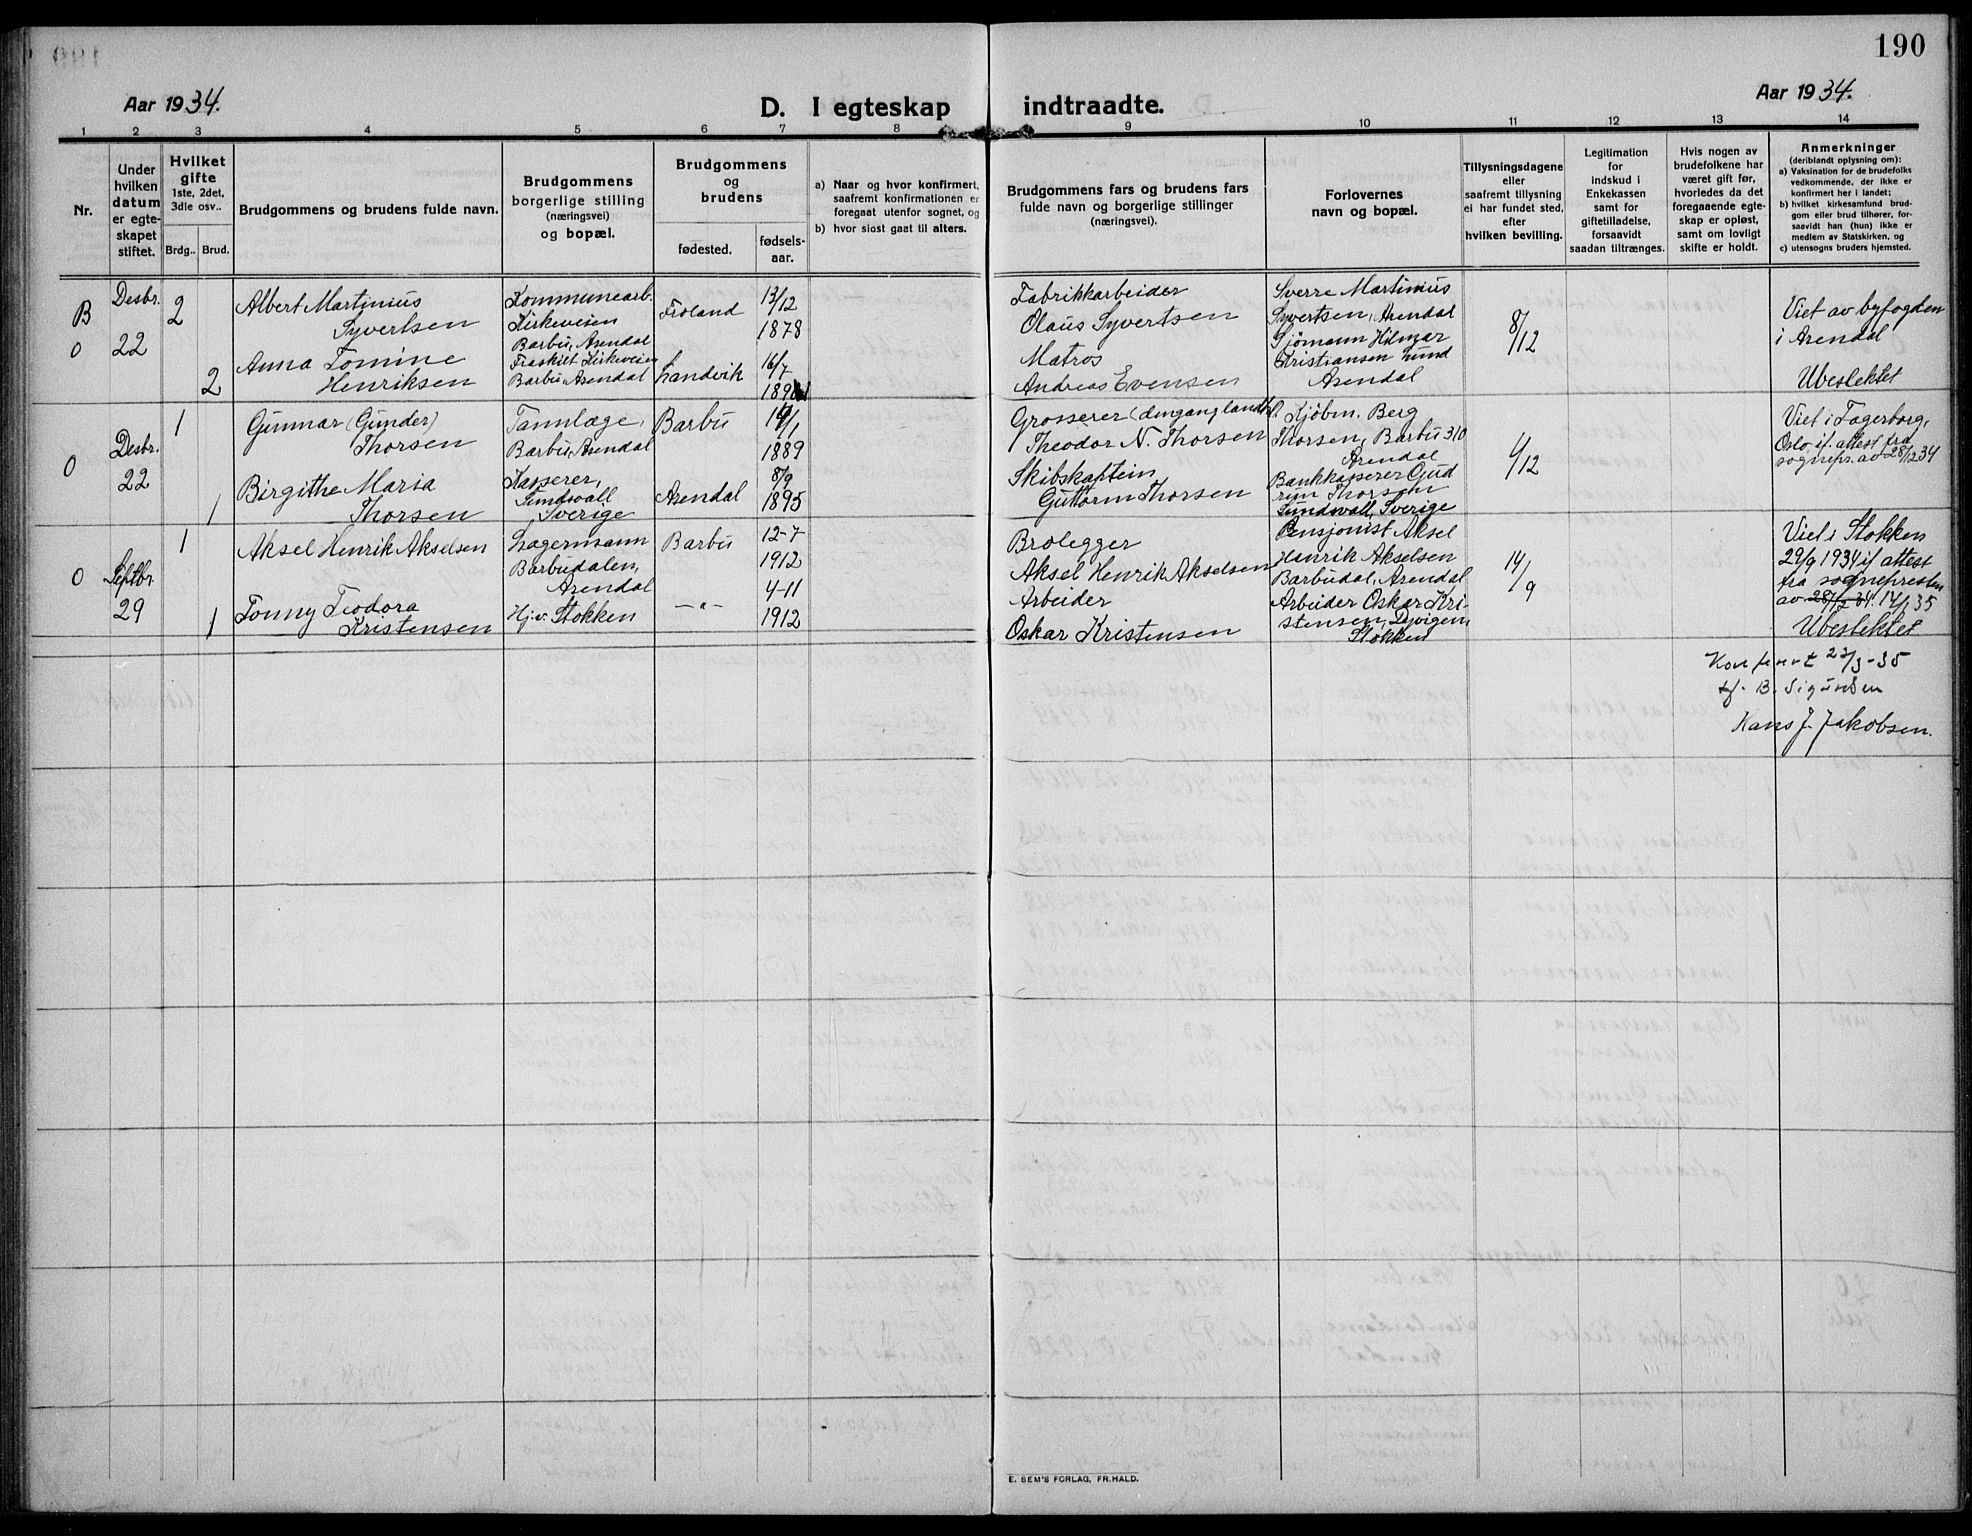 190
Aar 1934.
D. I egteskap indtraadte.
Aar 1934.
1 2 3 4 5 6 7 8 9 10 11 12 13 14
Nr.
Under
hvilken
datum
er egte-
skapet
stiftet.
Hvilket
gifte
1ste, 2det,
3die osv..
Brdg.. Brud.
Brudgommens og brudens fulde navn.
Brudgommens
borgerlige stilling
(næringsvei)
og bopæl.
Brudgommens
og
brudens
fødested.
fødsels-
aar.
a) Naar og hvor konfirmert,
saafremt konfirmationen er
foregaat utenfor sognet, og
b) hvor sidst gaat til alters.
Brudgommens fars og brudens fars
fulde navn og borgerlige stillinger
(næringsvei).
Forlovernes
navn og bopæl.
Tillysningsdagene
eller
saafremt tillysning
ei har fundet sted,
efter
hvilken bevilling.
Legitimation
for
indskud i
Enkekassen
samt for
giftetilladelse,
forsaavidt
saadan tiltrænges.
Hvis nogen av
brudefolkene har
været gift før,
hvorledes da det
foregaaende egte-
skap er opløst,
samt om lovligt
skifte er holdt.
Anmerkninger
(deriblandt oplysning om):
a) Vaksination for de brudefolks
vedkommende, der ikke er
konfirmert her i landet;
b) hvilket kirkesamfund brud-
gom eller brud tilhører, for-
saavidt han (hun) ikke er
medlem av Statskirken, og
c) utensogns bruders hjemsted.
B
0
Desbr.
22
2
2
Albert Martinius
Syvertsen
Anna Tomine
Henriksen
Kommunearb.
Kirkeveien
Barbu, Arendal
Fraskilt Kirkeveien
Barbu, Arendal
Froland
Landvik
13/12
1878
16/7
Fabrikkarbeider
Olaus Syvertsen
Matros
Andreas Evensen
Sverre Martinius
Syvertsen, Arendal
Sjømann Hilmar
Kristiansen Lund
Arendal
8/12
Viet av byfogden
i Arendal
Ubeslektet
0
Desbr.
22
1
1
Gunnar (Gunder)
Thorsen
Birgithe Maria
Thorsen
Tannlæge,
Barbu, Arendal
Kasserer,
Sundsvall
Sverige
Barbu
Arendal
1889
8/9
1895
Grosserer
Theodor N. Thorsen
Skibskaptein
Guttorm Thorsen
Kjøbm. Berg
Thorsen, Barbu 310
Arendal
Bankkasserer Gud
run Thorsen
Sundsvall, Sverige
4/12
Viet i Fagerborg,
Oslo, if. attest fra
sognepr. av 28/12 34
0
Septbr.
29
1
1
Aksel Henrik Akselsen
Tonny Teodora
Kristensen
Lagermann
Barbudalen,
Arendal
Hj.v. Stokken
Barbu
—"—
12-7
1912
4-11
1912
Brolegger
Aksel Henrik Akselsen
Arbeider
Oskar Kristensen
Pensjonist Aksel
Henrik Akselsen
Barbudal, Arendal
Arbeider Oskar Kri-
stensen, Dyvigen,
Stokken
14/9
Viet i Stokken
29/9 1934 if attest
fra sognepresten
av 28/12 34. 14/1 35
Ubeslektet
Konferert 23/3-35
B. Sigurdsen
Hans J. Jakobsen.
E. SEM'S FORLAG, FR.HALD.